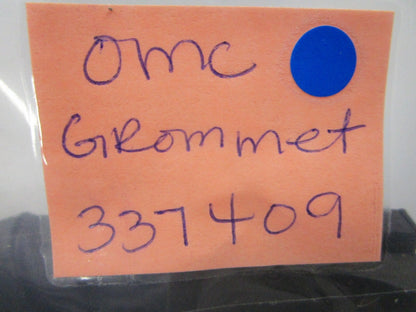 OMC
GRommet
337409